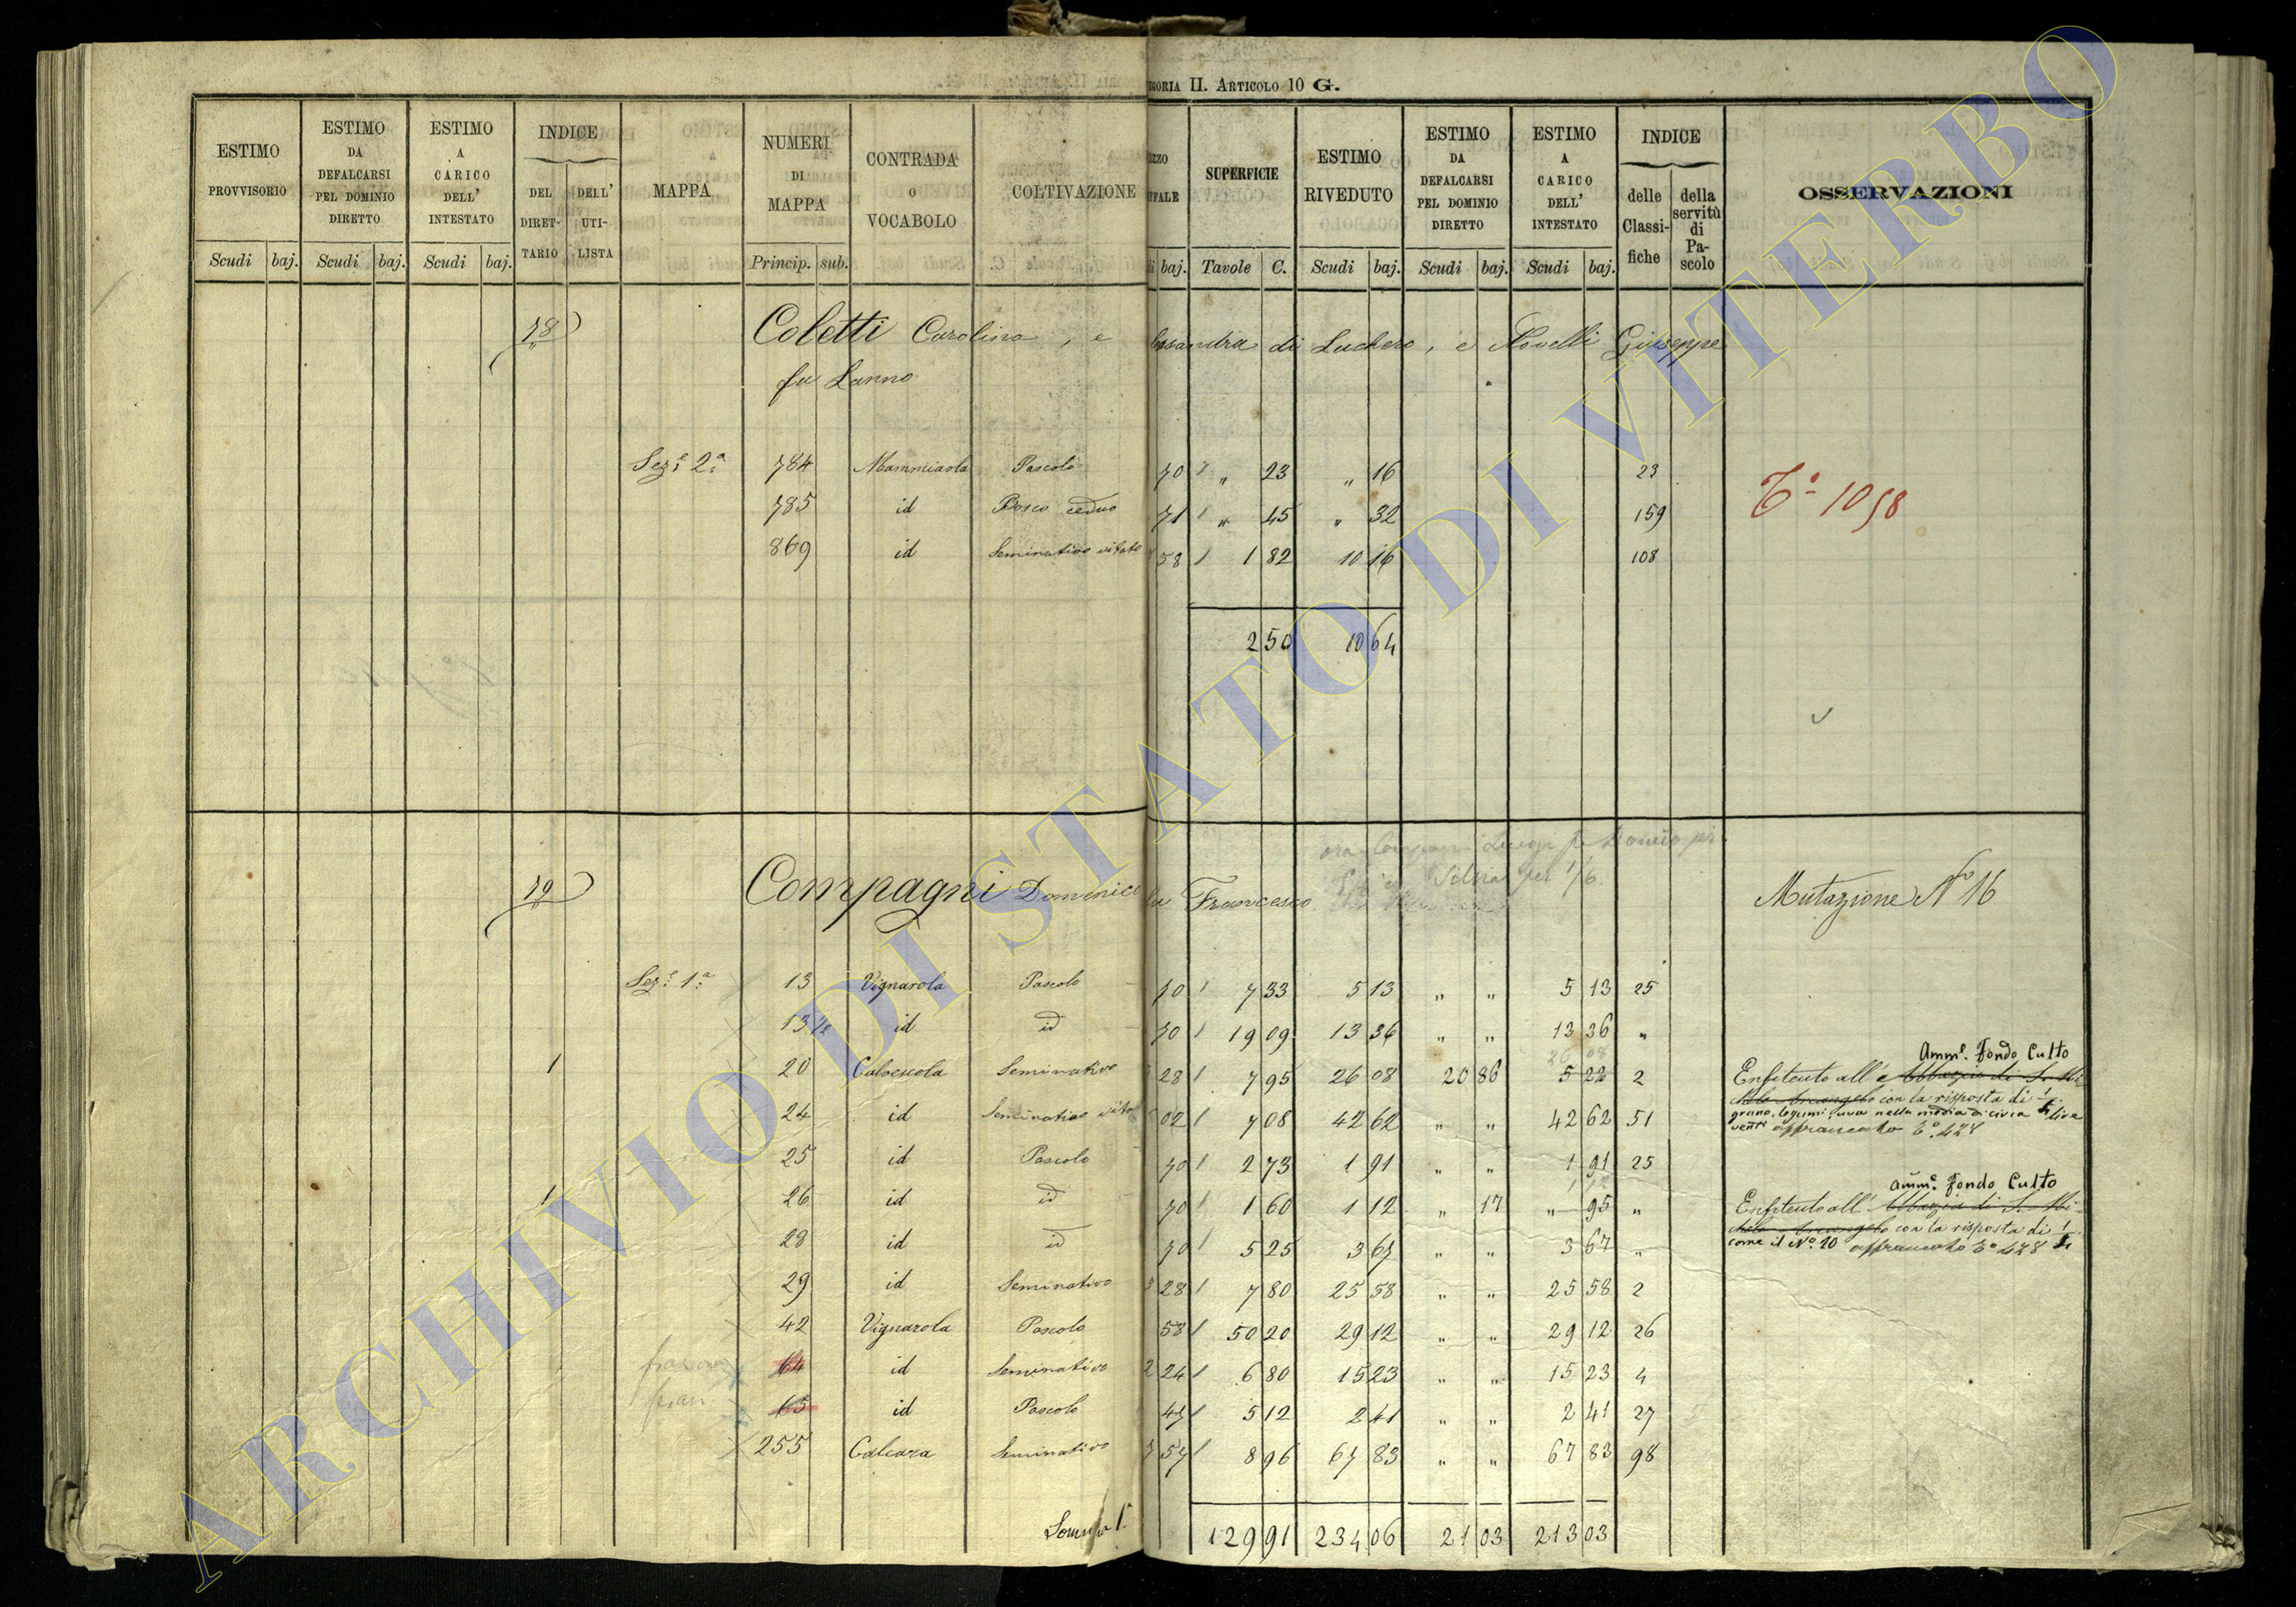 EGORIA II. ARTICOLO 10 G.
ESTIMO PROVVISORIO Scudi baj.
ESTIMO DA DEFALCARSI PEL DOMINIO DIRETTO Scudi baj.
ESTIMO A CARICO DELL' INTESTATO Scudi baj.
INDICE DEL DIRET-TARIO DELL' UTI-LISTA
MAPPA
NUMERI DI MAPPA Princip. sub.
CONTRADA O VOCABOLO
COLTIVAZIONE
EZZO IPALE baj.
SUPERFICIE Tavole C.
ESTIMO RIVEDUTO Scudi baj.
ESTIMO DA DEFALCARSI PEL DOMINIO DIRETTO Scudi baj.
ESTIMO A CARICO DELL' INTESTATO Scudi baj.
INDICE delle Classi-fiche della servitù di Pa-scolo
OSSERVAZIONI
78 Coletti Carolina, e lessandra di Luchero, e Novelli Giuseppe
fu Lanno
Sez.e 2.a 784 Mammiaola Pascolo 70 " 23 " 16 23
785 id Bosco ceduo 71 " 45 " 32 159
869 id Seminativo vitato 58 1 82 10 16 108
T.o 1058
2 50 10 64
ora Compagni Luigi fu Domco per
Selvia per 1/6
79 Compagni Domenico fu Francesco Mutazione No 16
Sez.e 1.a 13 Vignarola Pascolo 70 7 33 5 13 " " 5 13 25
13 1/2 id id 70 19 09 13 36 " " 13 36 "
26 08
1 20 Calvescola Seminativo 28 7 95 26 08 20 86 5 22 2
Amme. Fondo Culto
Enfiteuto all'e Abbazia di S. Mi-
chele Arcangelo con la risposta di
grano, legumi, uva nella media di circa lire
venti affrancato T.o 428
24 id Seminativo vitato 02 7 08 42 62 " " 42 62 51
25 id Pascolo 70 2 73 1 91 " " 1 91 25
1 12
1 26 id id 70 1 60 1 12 " 17 " 95 "
Amme. Fondo Culto
Enfiteuto all' Abbazia di S. Mi-
chele Arcangelo con la risposta di
come il No. 20 affrancato T.o 428
28 id id 70 5 25 3 67 " " 3 67 "
29 id Seminativo 28 7 80 25 58 " " 25 58 2
42 Vignarola Pascolo 58 50 20 29 12 " " 29 12 26
64 id Seminativo 2 24 6 80 15 23 " " 15 23 4
65 id Pascolo 47 5 12 2 41 " " 2 41 27
255 Calcara Seminativo 7 57 8 96 67 83 " " 67 83 98
Somma 1.a 129 91 234 06 21 03 213 03
ARCHIVIO DI STATO DI VITERBO